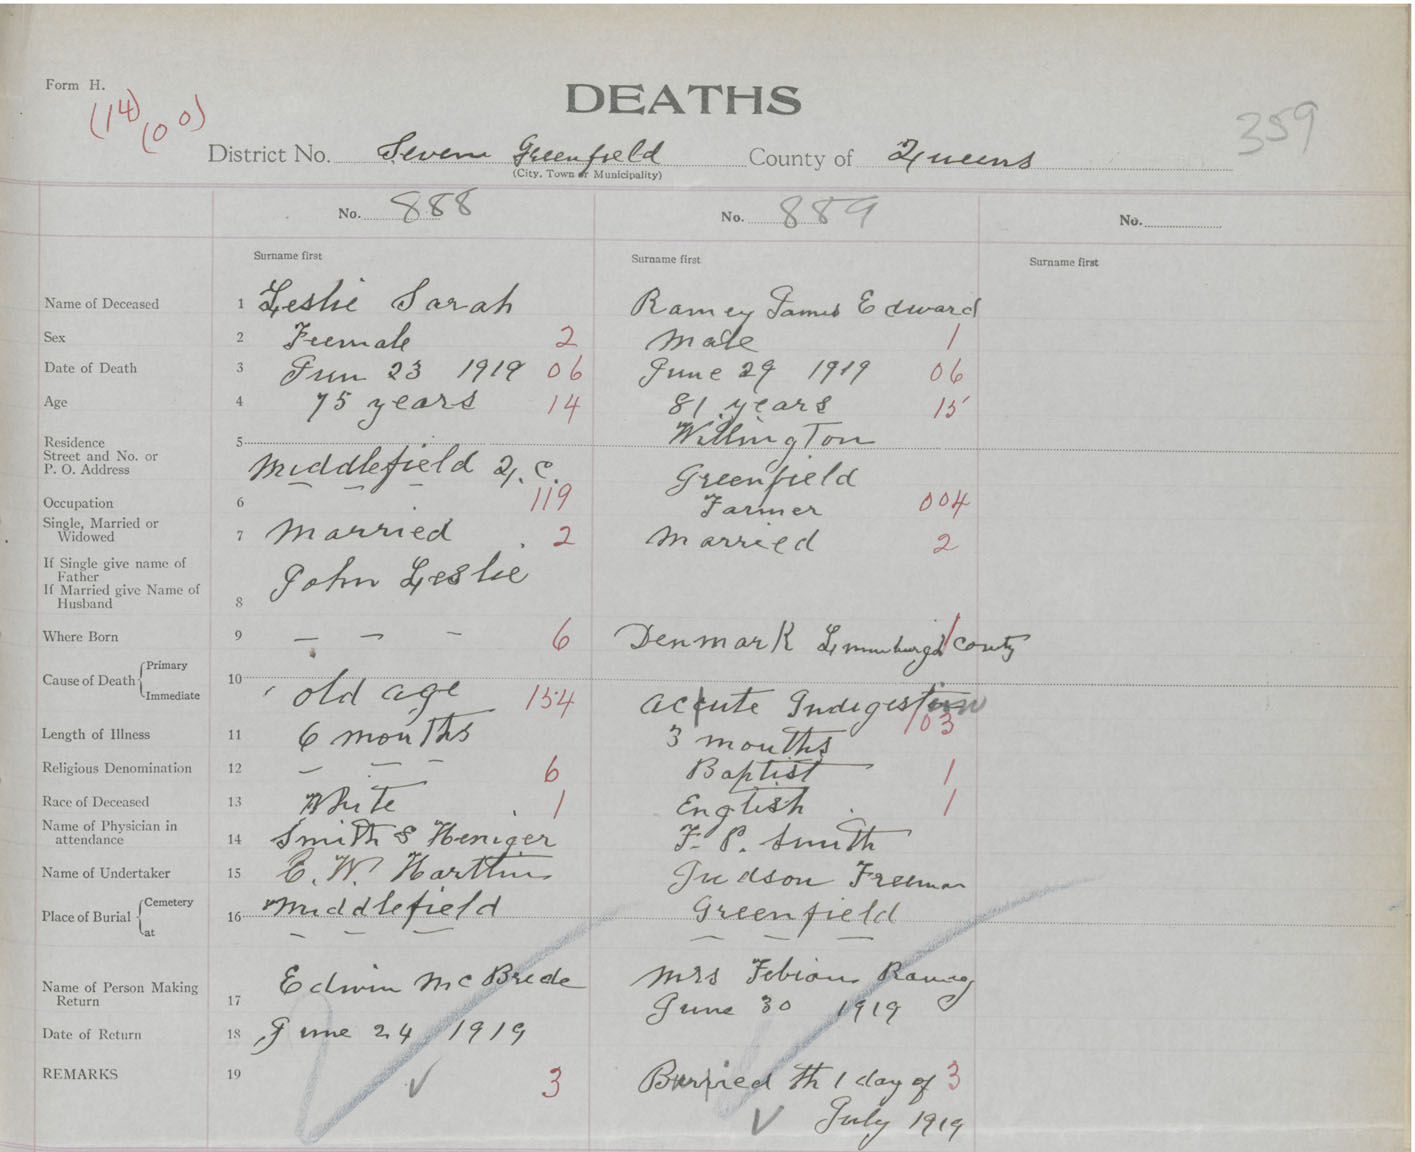 Form H.
(14)
(00)
DEATHS
359
District No. Seven Greenfield County of Queens
(City, Town or Municipality)
No. 888 No. 889 No.
Surname first Surname first Surname first
Name of Deceased 1 Leslie Sarah Ramey James Edward
Sex 2 Feemale 2 male 1
Date of Death 3 Jun 23 1919 06 June 29 1919 06
Age 4 75 years 14 81 years 15
Willington
Residence 5
Street and No. or
P. O. Address Middlefield Q. C. Greenfield
Occupation 6 119 Farmer 004
Single, Married or
Widowed 7 Married 2 Married 2
If Single give name of
Father
If Married give Name of
Husband 8 John Leslie
Where Born 9 — — — 6 Denmark County 1
Cause of Death Primary
Immediate 10 old age 154 Accute Indigestion 103
Length of Illness 11 6 months 3 months
Religious Denomination 12 — — — 6 Baptist 1
Race of Deceased 13 White 1 English 1
Name of Physician in
attendance 14 Smith & Heniger F. P. Smith
Name of Undertaker 15 E. W. Judson Freeman
Place of Burial Cemetery
at 16 Middlefield Greenfield
— — — — — —
Name of Person Making
Return 17 Edwin McBride Mrs Febian Ramey
Date of Return 18 June 24 1919 June 30 1919
REMARKS 19 3 Burried th 1 day of 3
July 1919